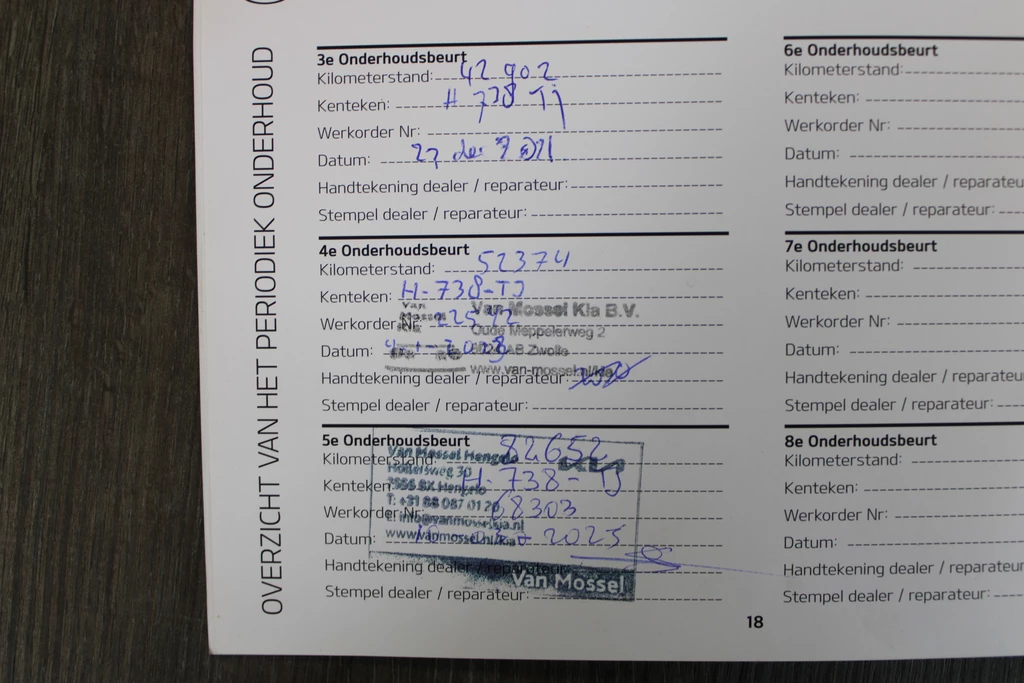 OVERZICHT VAN HET PERIODIEK ONDERHOUD
3e Onderhoudsbeurt
Kilometerstand: 42 902
Kenteken: H 738 TJ
Werkorder Nr:
Datum: 27 dec
Handtekening dealer / reparateur:
Stempel dealer / reparateur:
4e Onderhoudsbeurt
Kilometerstand: 52374
Kenteken: H-738-TJ
Van Mossel Kia B.V.
Werkorder Nr:
Oude Meppelerweg 2
Datum:
AB Zwolle
www.van-mossel.nl/kia
Handtekening dealer / reparateur:
Stempel dealer / reparateur:
5e Onderhoudsbeurt
Kilometerstand: 82652
Kenteken: H-738-TJ
Werkorder Nr: 68303
Datum: 2025
Van Mossel Hengelo
7556 BX Hengelo
T: +31 88 087 01 20
E: info@vanmosselkia.nl
www.vanmossel.nl/kia
Handtekening dealer / reparateur:
Van Mossel
Stempel dealer / reparateur:
6e Onderhoudsbeurt
Kilometerstand:
Kenteken:
Werkorder Nr:
Datum:
Handtekening dealer / reparateu
Stempel dealer / reparateur:
7e Onderhoudsbeurt
Kilometerstand:
Kenteken:
Werkorder Nr:
Datum:
Handtekening dealer / reparateu
Stempel dealer / reparateur:
8e Onderhoudsbeurt
Kilometerstand:
Kenteken:
Werkorder Nr:
Datum:
Handtekening dealer / reparateur
Stempel dealer / reparateur:
18